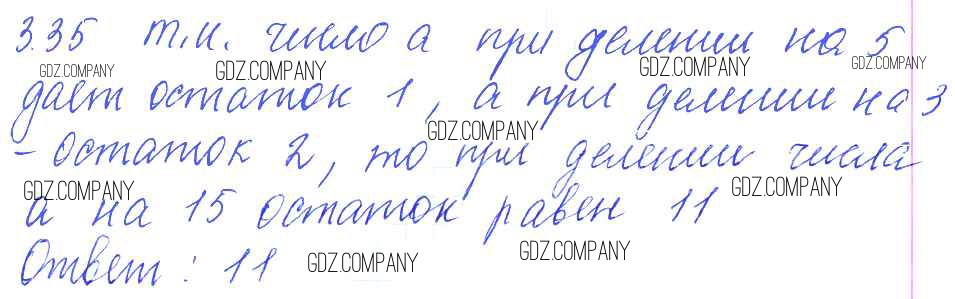 3.35 т.к. число а при делении на 5
GDZ.COMPANY GDZ.COMPANY GDZ.COMPANY GDZ.COMPANY
дает остаток 1, а при делении на 3
GDZ.COMPANY
- остаток 2, то при делении числа
GDZ.COMPANY GDZ.COMPANY
а на 15 остаток равен 11
GDZ.COMPANY GDZ.COMPANY
Ответ: 11